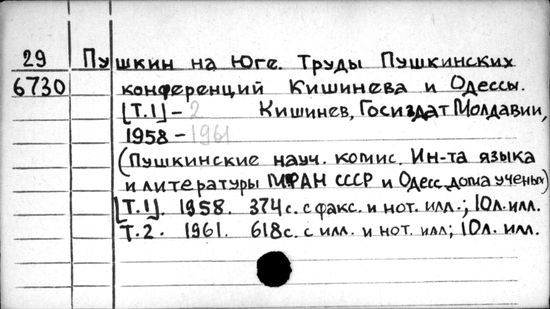 29 Пушкин на Юге. Труды Пушкинских
6730 конференций Кишинева и Одессы.
[Т.1] - 2 Кишинев, Госиздат Молдавии,
1958 - 1961
(Пушкинские науч. комис. Ин-та языка
и литературы МФАН СССР и Одесс. дома ученых)
[Т.1]. 1958. 374 с. с факс. и нот. илл.; 10л. илл.
Т.2. 1961. 618с. с илл. и нот. илл; 10л. илл.